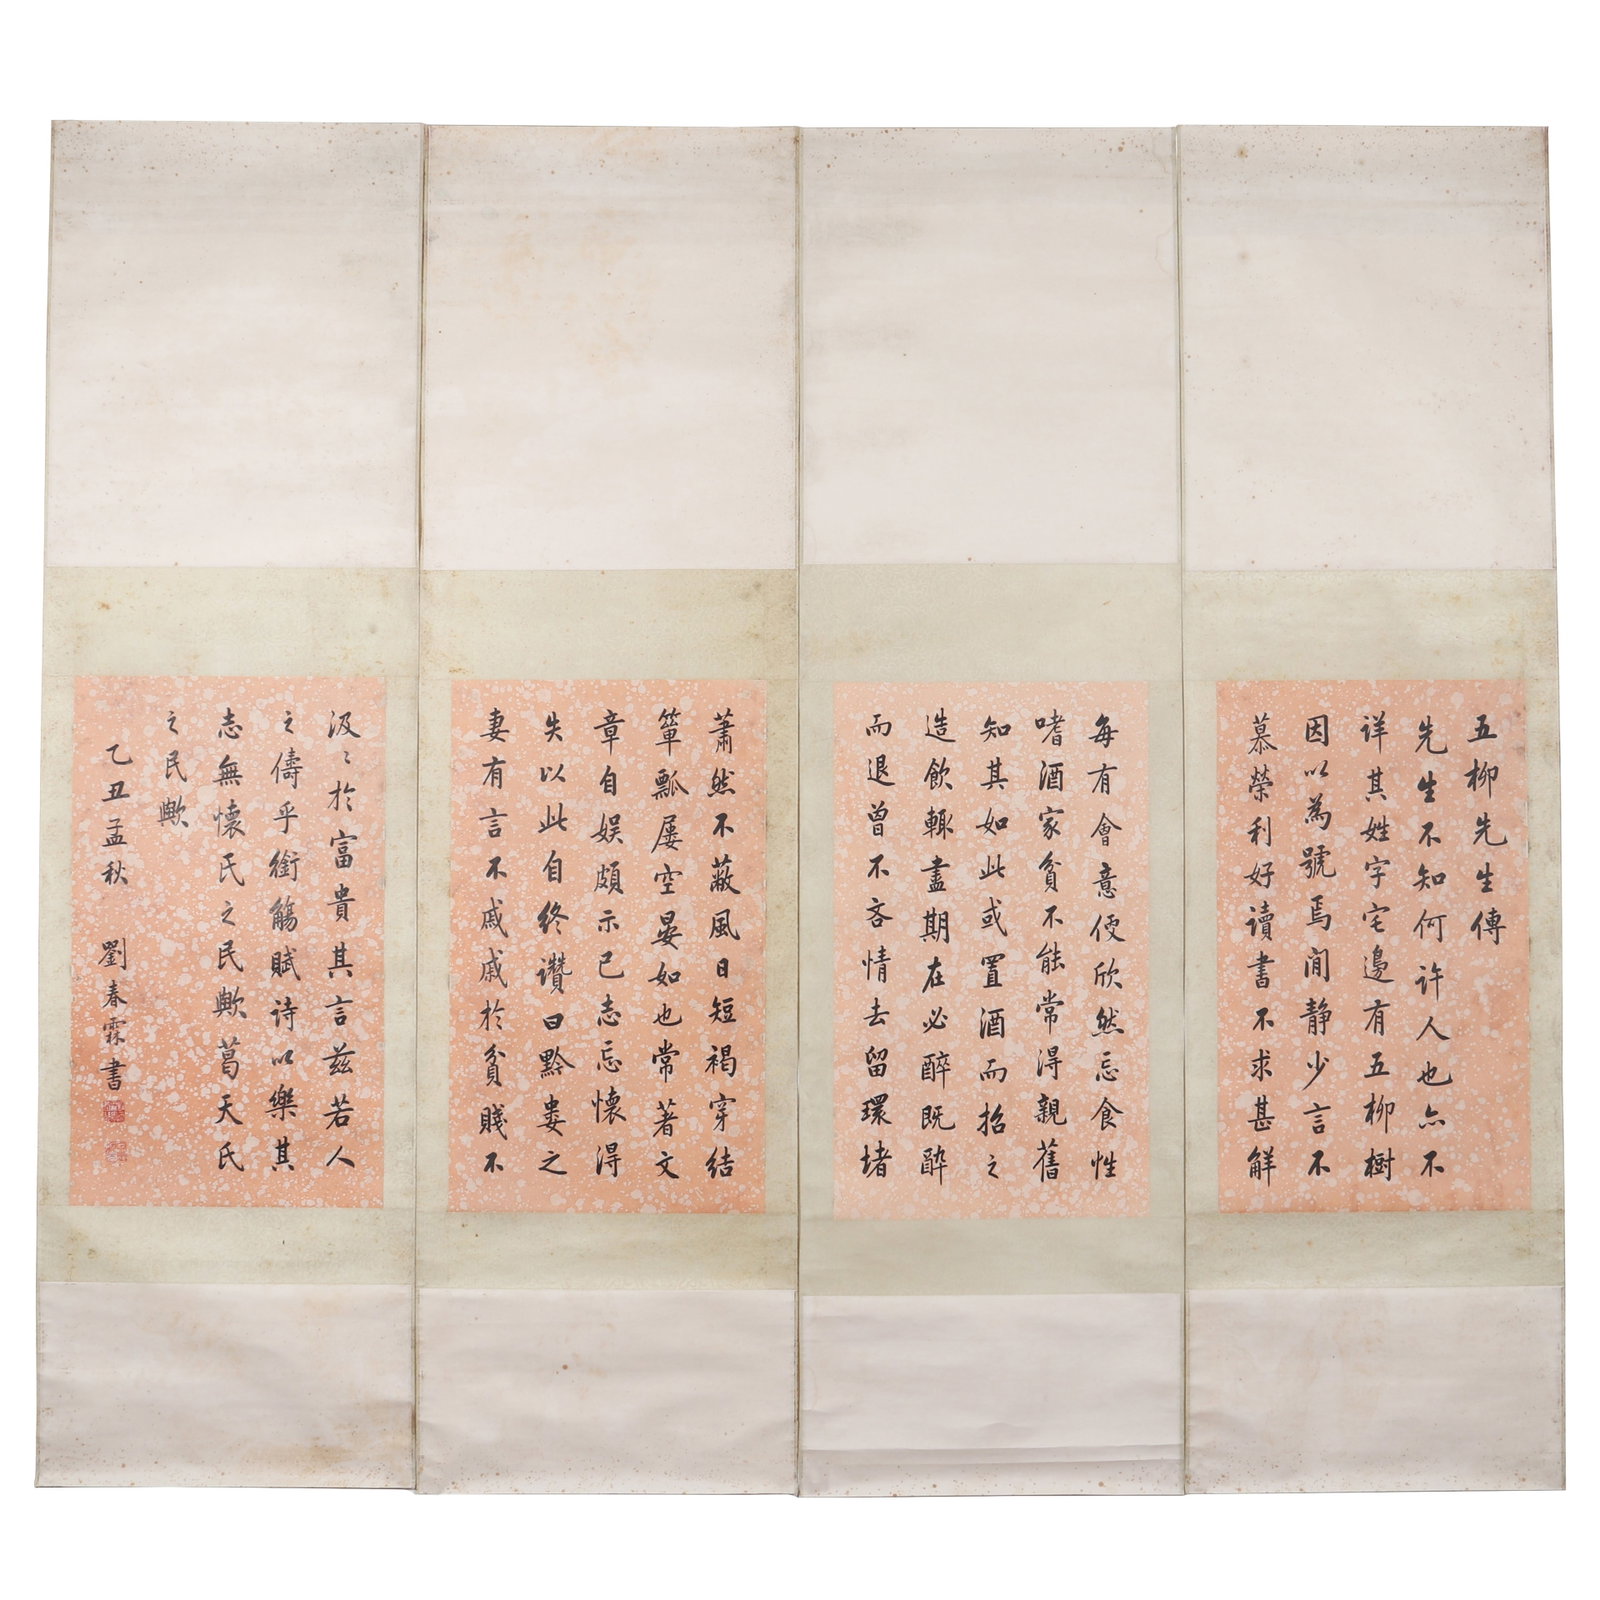 五柳先生傳
先生不知何許人也亦不
詳其姓字宅邊有五柳樹
因以為號焉閒靜少言不
慕榮利好讀書不求甚解
每有會意便欣然忘食性
嗜酒家貧不能常得親舊
知其如此或置酒而招之
造飲輒盡期在必醉既醉
而退曾不吝情去留環堵
蕭然不蔽風日短褐穿結
簞瓢屢空晏如也常著文
章自娛頗示己志忘懷得
失以此自終讚曰黔婁之
妻有言不戚戚於貧賤不
汲〻於富貴其言茲若人
之儔乎銜觴賦詩以樂其
志無懷氏之民歟葛天氏
之民歟
乙丑孟秋 劉春霖書